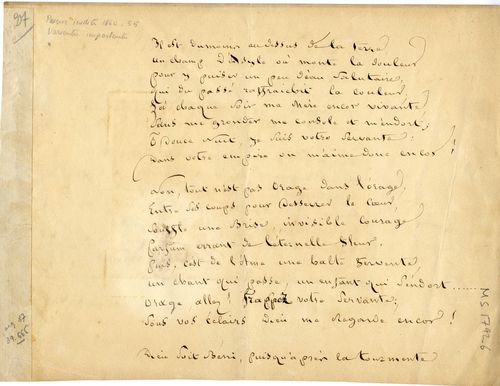 27
Poésie inédite 1850-55
Variante importante
Il est du moins au dessus de la terre
un champ d'Asyle où monte la douleur
pour y puiser un peu d'eau salutaire,
qui du passé raffraichit la couleur.
Là chaque soir ma Mère encor vivante
Sans me gronder me console et m'endort;
O Douce Nuit, je suis votre Servante:
dans votre empire on m'aime donc encor!
Non, tout n'est pas Orage dans l'orage,
Entre ses coups pour Desserrer le Cœur,
Souffle une Brise, invisible courage
Parfum errant de l'éternelle fleur.
Puis, c'est de l'Ame une halte fervente
un chant qui passe, un enfant qui s'endort......
Orage allez! frappez votre Servante;
Sous vos éclairs Dieu me Regarde encor!
Dieu soit Béni, puisqu'après la tourmente
MS 1792-6